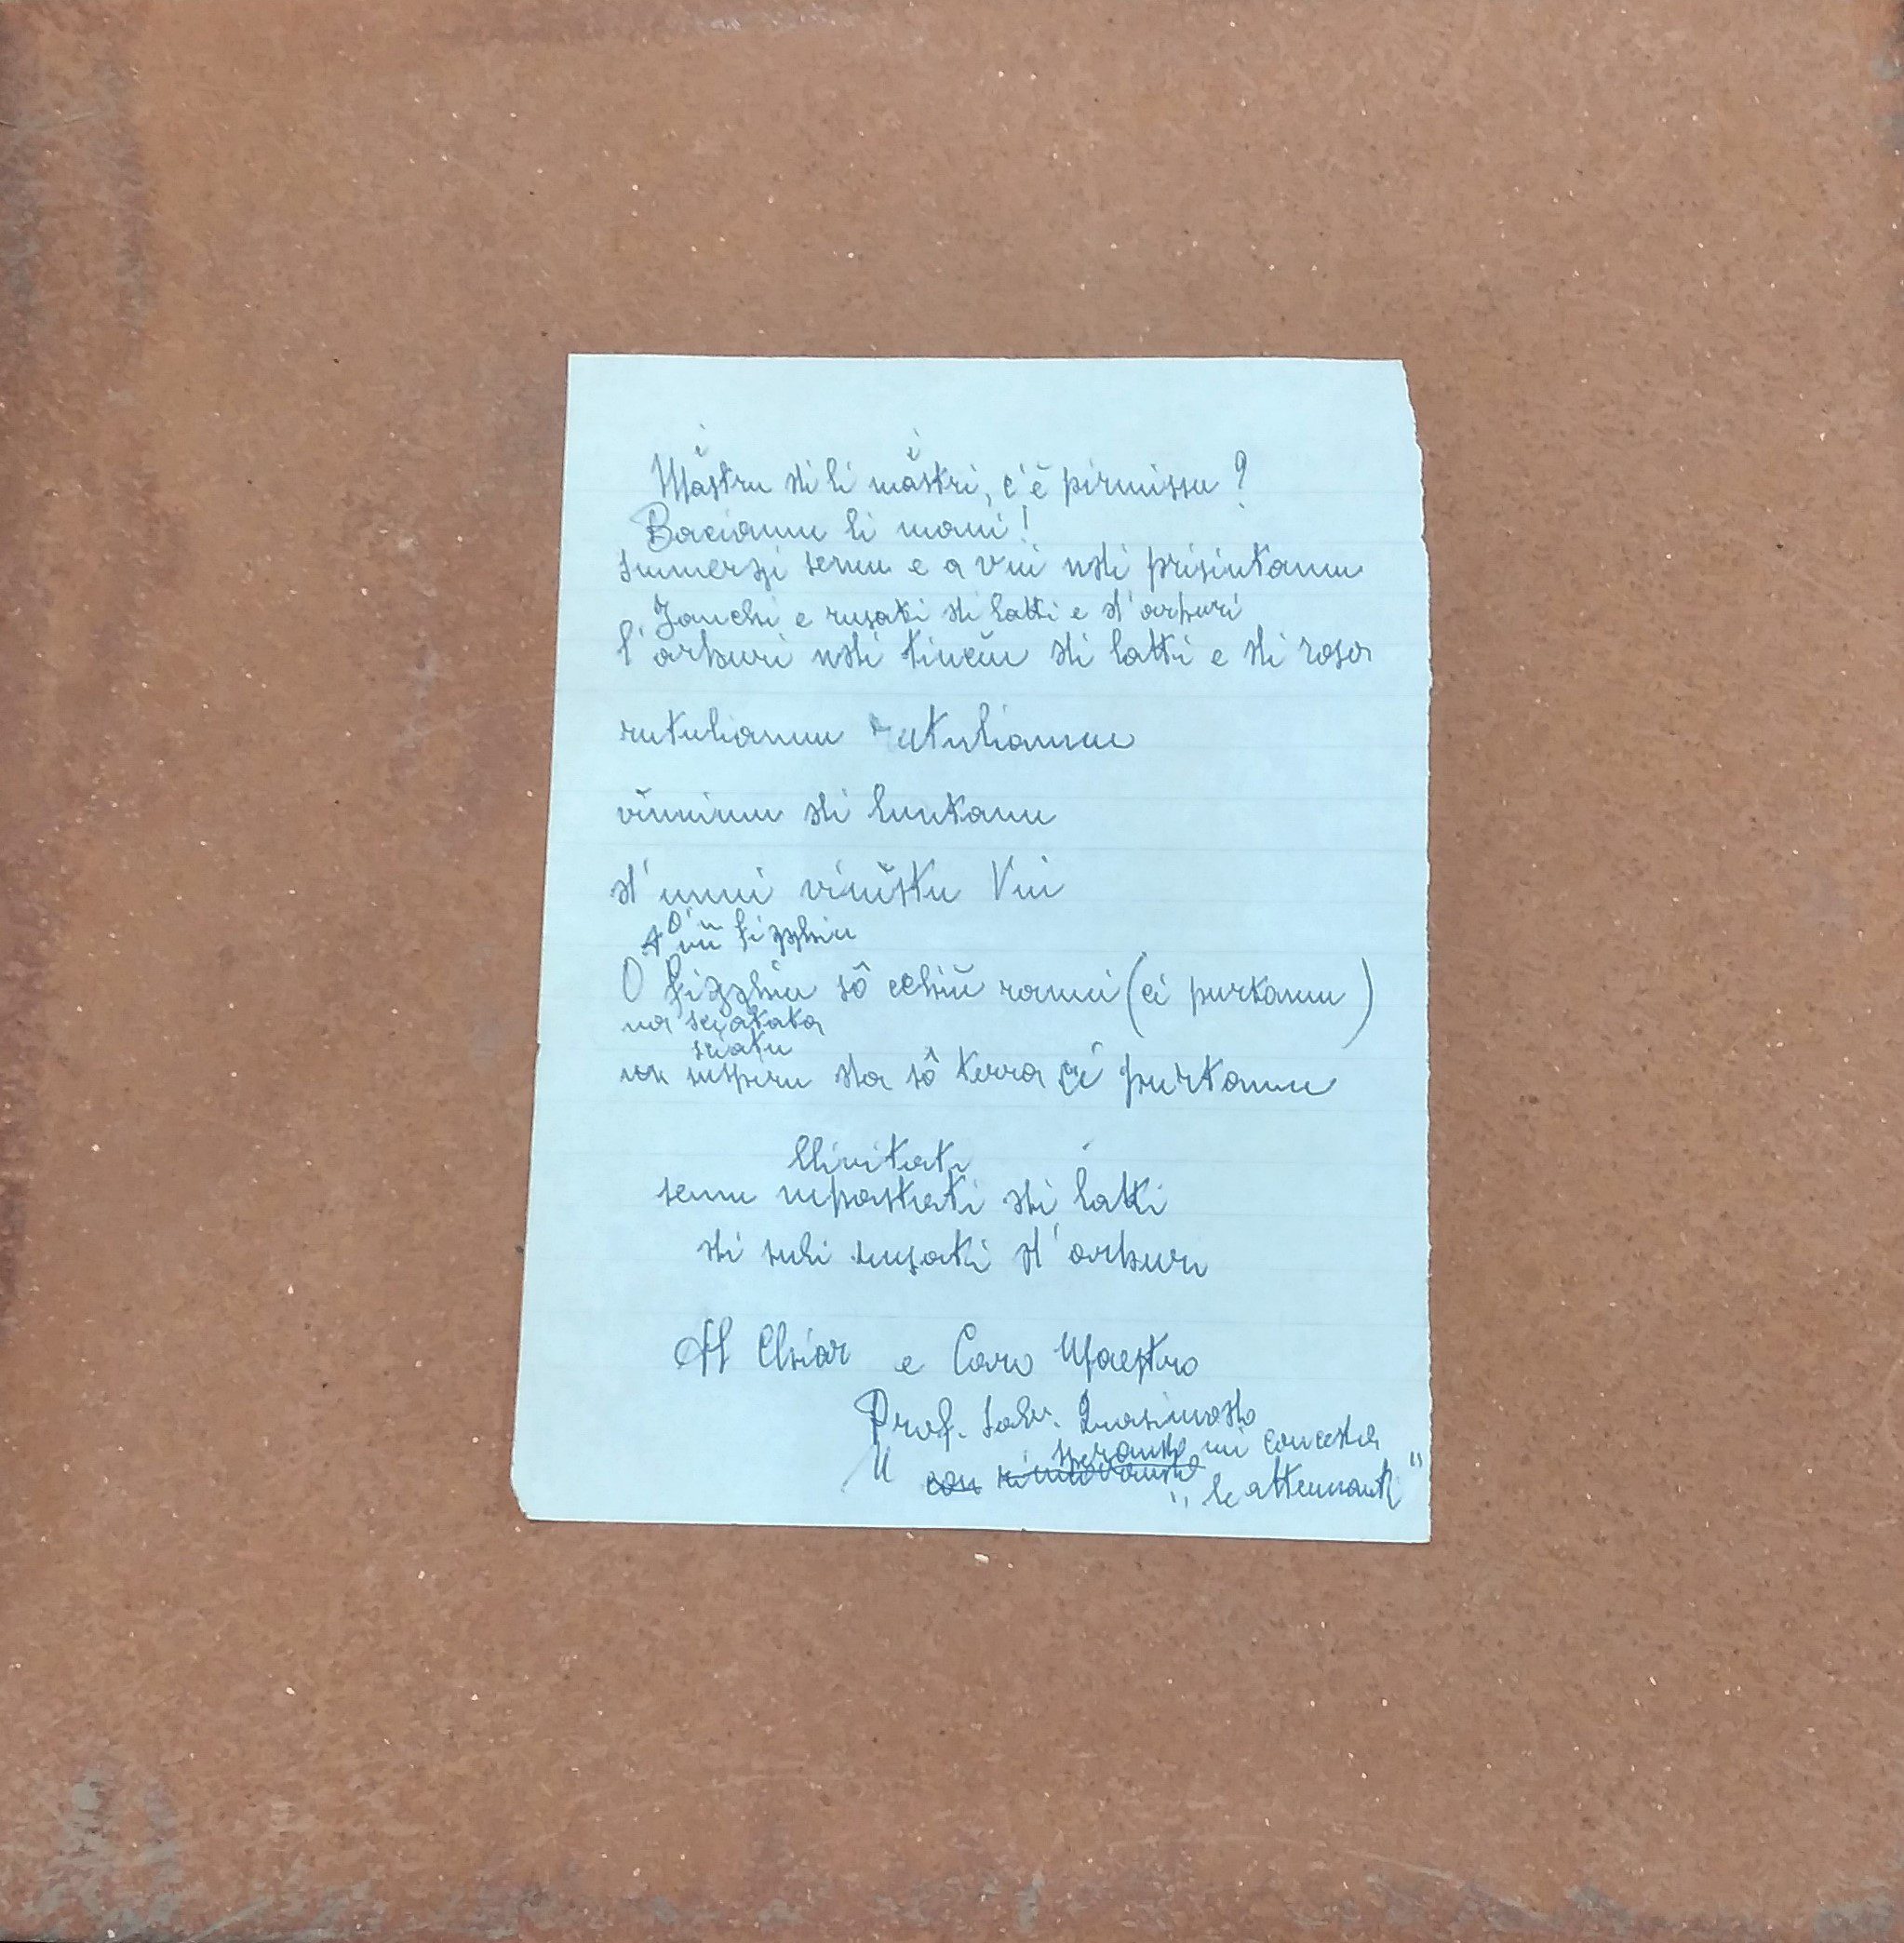 Măstru di li măstri, c'è pirmissu?
Baciamu li mani!
summerzi semu e a Vui ndi prisintamu
Janchi e rusati di latti e d'arburi
l'arburi ndi tinciu di latti e di rosa
rutuliamu rutuliamu
vinnimu di luntanu
d'unni vinistu Vui
figghiu
O figghiu sô cchiù ranni (ci purtamu)
na sciatata
sciatu
suspiru da sô terra ci purtamu
semu mpastati di latti
di suli rusati d'arburi
Al Chiar e Caro Maestro
Prof. Salv. Quasimodo
sperando mi conceda
con
"le attenuanti"